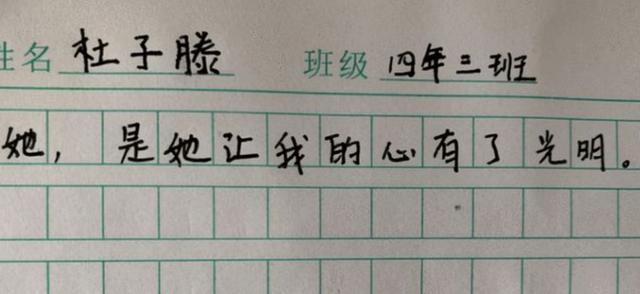 姓名 杜子滕 班级 四年三班
她，是她让我的心有了光明。